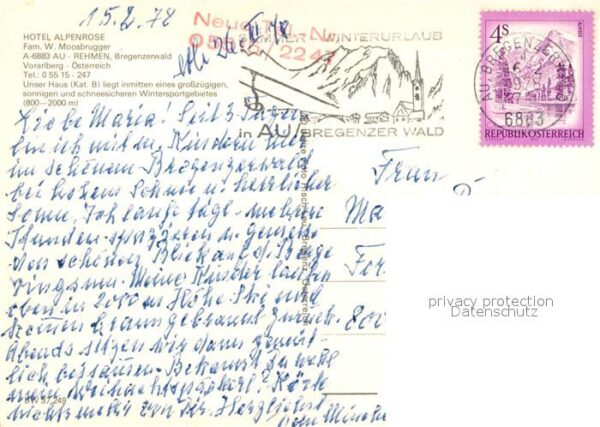 15.2.78
HOTEL ALPENROSE
Fam. W. Moosbrugger
A-6883 AU - REHMEN, Bregenzerwald
Vorarlberg - Österreich
Tel.: 0 55 15 - 247
Unser Haus (Kat. B) liegt inmitten eines großzügigen,
sonnigen und schneesicheren Wintersportgebietes
(800–2000 m)
Neue Tel. Nr.
05515/ 2247
WINTERURLAUB
in AU, BREGENZER WALD
4S
REPUBLIK ÖSTERREICH
AU, BREGENZERWALD
6883
Liebe Maria! Seit 3 Tagen
bin ich mit m. Kindern hier
im schönen Bregenzerwald
bei hohem Schnee u. herrlicher
Sonne. Ich laufe tägl. mehrere
Stunden spazieren u. geniesse
den schönen Blick auf d. Berge
ringsum. Meine Kinder laufen
oben in 2000 m Höhe Ski und
kommen braungebrannt zurück.
Abends sitzen wir dann gemüt-
lich beisammen. Bekamst Du wohl
meine Weihnachtspost? Hörte
nichts mehr von Dir. Herzlichst
Frau
Ma
For
BW 37 249
privacy protection
Datenschutz